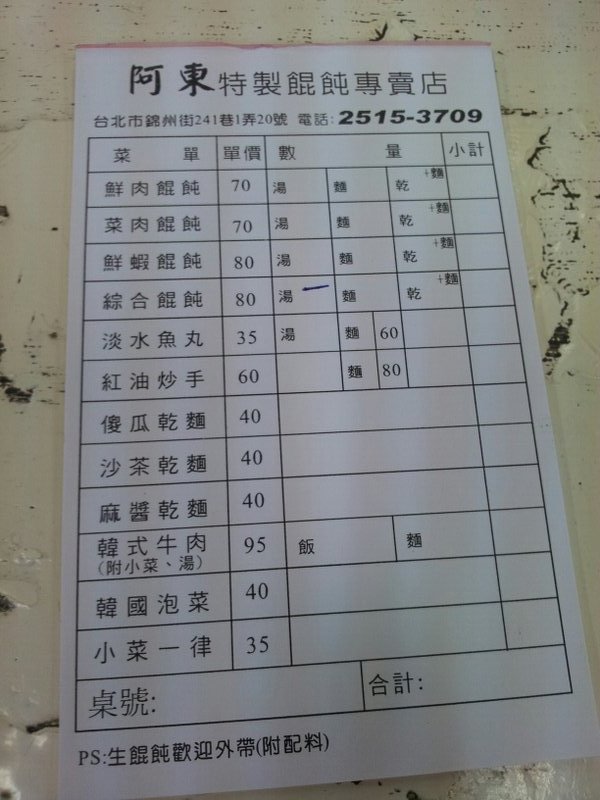 阿東特製餛飩專賣店
台北市錦州街241巷1弄20號 電話:2515-3709
菜單 單價 數量 小計
鮮肉餛飩 70 湯 麵 乾 +麵
菜肉餛飩 70 湯 麵 乾 +麵
鮮蝦餛飩 80 湯 麵 乾 +麵
綜合餛飩 80 湯 麵 乾 +麵
淡水魚丸 35 湯 麵 60
紅油炒手 60 麵 80
傻瓜乾麵 40
沙茶乾麵 40
麻醬乾麵 40
韓式牛肉 95 飯 麵
(附小菜、湯)
韓國泡菜 40
小菜一律 35
桌號: 合計:
PS:生餛飩歡迎外帶(附配料)